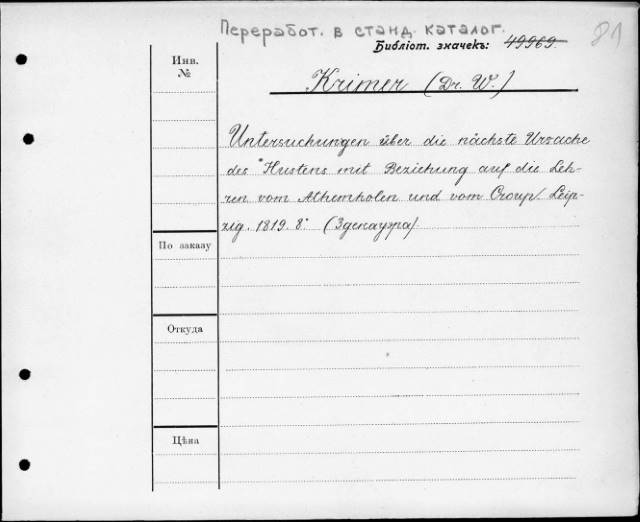 Переработ. в станд. каталог.
81
Библіот. значекъ: 49969.
Инв. №
Krimer (Dr. W.)
Untersuchungen über die nächste Ursache
des Hustens mit Beziehung auf die Leh-
ren vom Athemholen und vom Croup/ Leip-
zig. 1819. 8° (Здекауера)
По заказу
Откуда
Цѣна